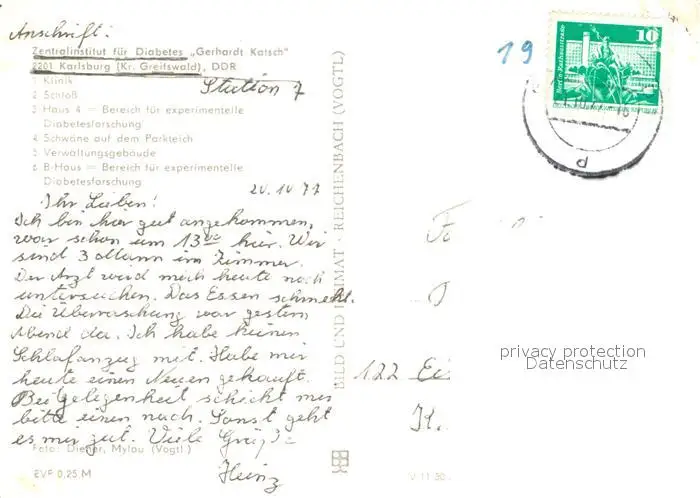 Anschrift:
Zentralinstitut für Diabetes „Gerhardt Katsch"
2201 Karlsburg (Kr. Greifswald), DDR
Station 7
1 Klinik
2 Schloß
3 Haus 4 = Bereich für experimentelle
Diabetesforschung
4 Schwäne auf dem Parkteich
5 Verwaltungsgebäude
6 B-Haus = Bereich für experimentelle
Diabetesforschung
20.10.77
Ihr Lieben!
Ich bin hier gut angekommen,
war schon um 13 00 hier. Wir
sind 3 Mann im Zimmer.
Der Arzt wird mich heute noch
untersuchen. Das Essen schmeckt.
Die Überraschung war gestern
Abend da. Ich habe keinen
Schlafanzug mit. Habe mir
heute einen Neuen gekauft.
Bei Gelegenheit schickt mir
bitte einen nach. Sonst geht
es mir gut. Viele Grüße
Heinz
Foto: Diener, Mylau (Vogtl.)
EVP 0,25 M
BILD UND HEIMAT · REICHENBACH (VOGTL)
19
10
d
122 Ei
K.
V 11 50
privacy protection
Datenschutz